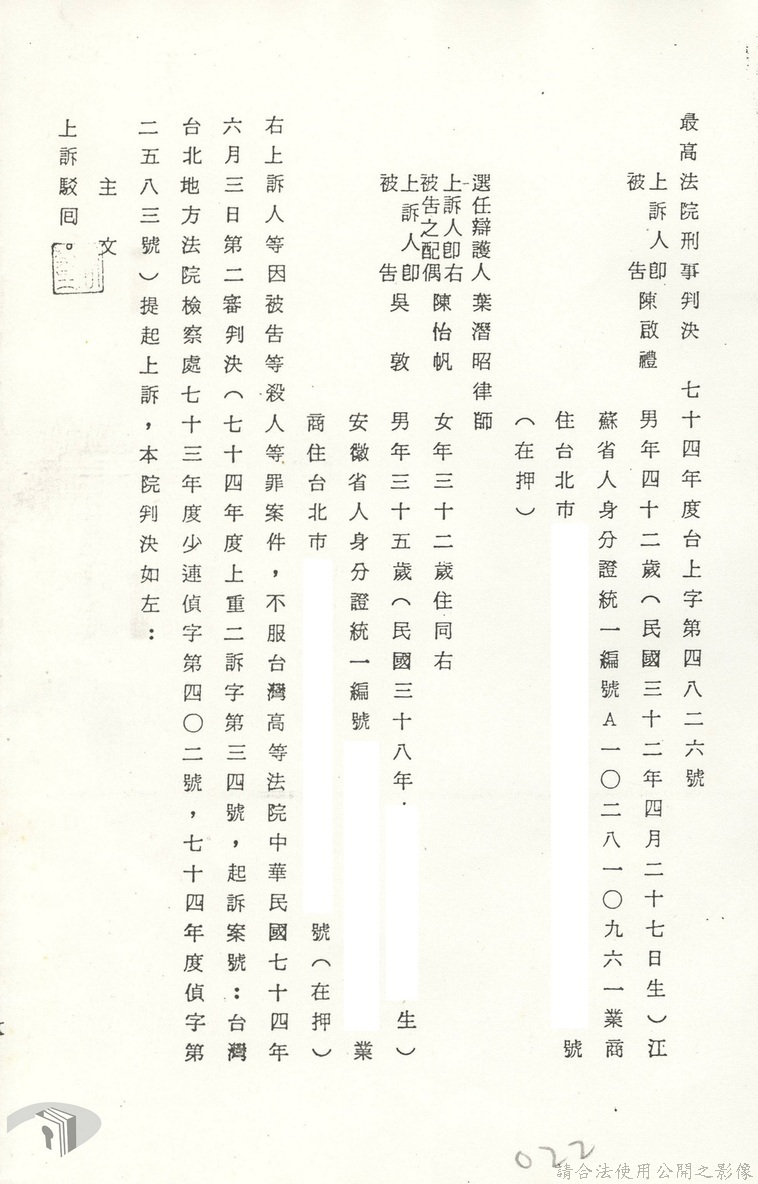 最高法院刑事判決　七十四年度台上字第四八二六號
上訴人即
被　　告陳啟禮　男年四十二歲（民國三十二年四月二十七日生）江
蘇省人身分證統一編號A一〇二八一〇九六一業商
住台北市　號
（在押）
選任辯護人葉潛昭律師
上訴人即右
被告之配偶陳怡帆　女年三十二歲住同右
上訴人即
被　　告吳　敦　男年三十五歲（民國三十八年　生）
安徽省人身分證統一編號　業
商住台北市　號（在押）
右上訴人等因被告等殺人等罪案件，不服台灣高等法院中華民國七十四年
六月三日第二審判決（七十四年度上重二訴字第三四號，起訴案號：台灣
台北地方法院檢察處七十三年度少連偵字第四〇二號，七十四年度偵字第
二五八三號）提起上訴，本院判決如左：
主　文
上訴駁回。
022
請合法使用公開之影像